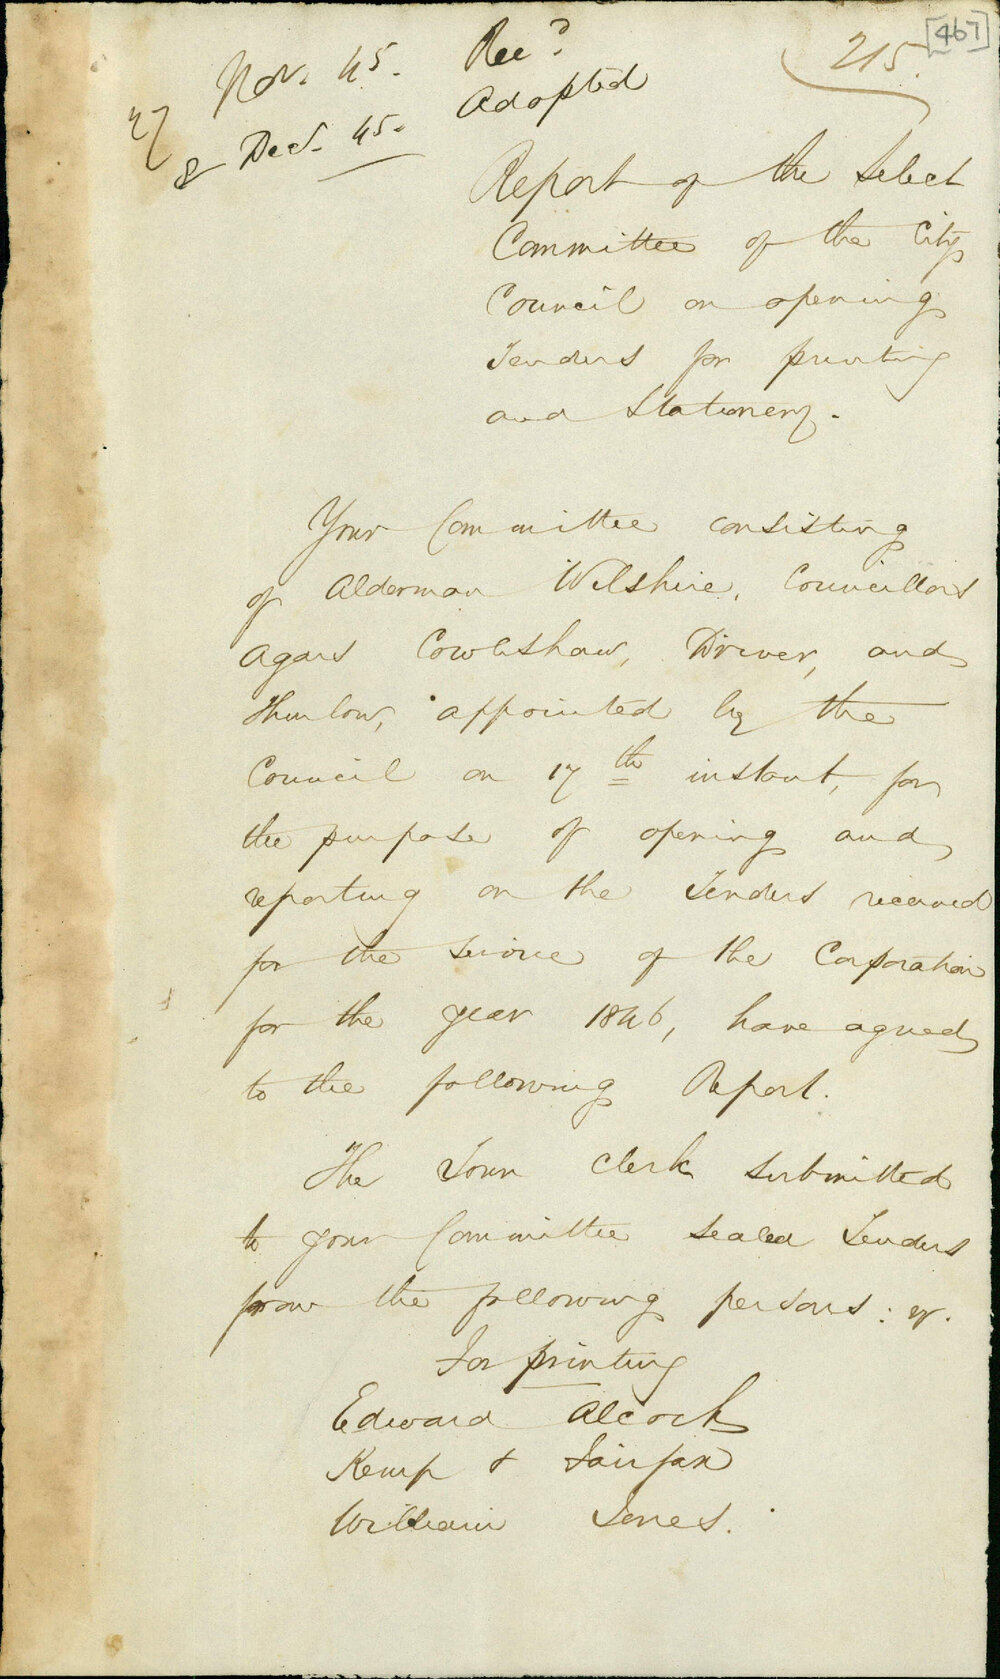 [467]
215.
27 Nov. 45. Recd
8 Decr. 45. Adopted
Report of the Select
Committee of the City
Council on opening
Tenders for printing
and Stationery.
Your Committee consisting
of Alderman Wilshire, Councillors
Agars Cowlishaw, Driver, and
Thurlow, appointed by the
Council on 17th instant, for
the purpose of opening and
reporting on the Tenders received
for the service of the Corporation
for the year 1846, have agreed
to the following Report.
The Town Clerk submitted
to your Committee sealed Tenders
from the following persons:
For printing
Edward Alcock
Kemp & Fairfax
William Jones.